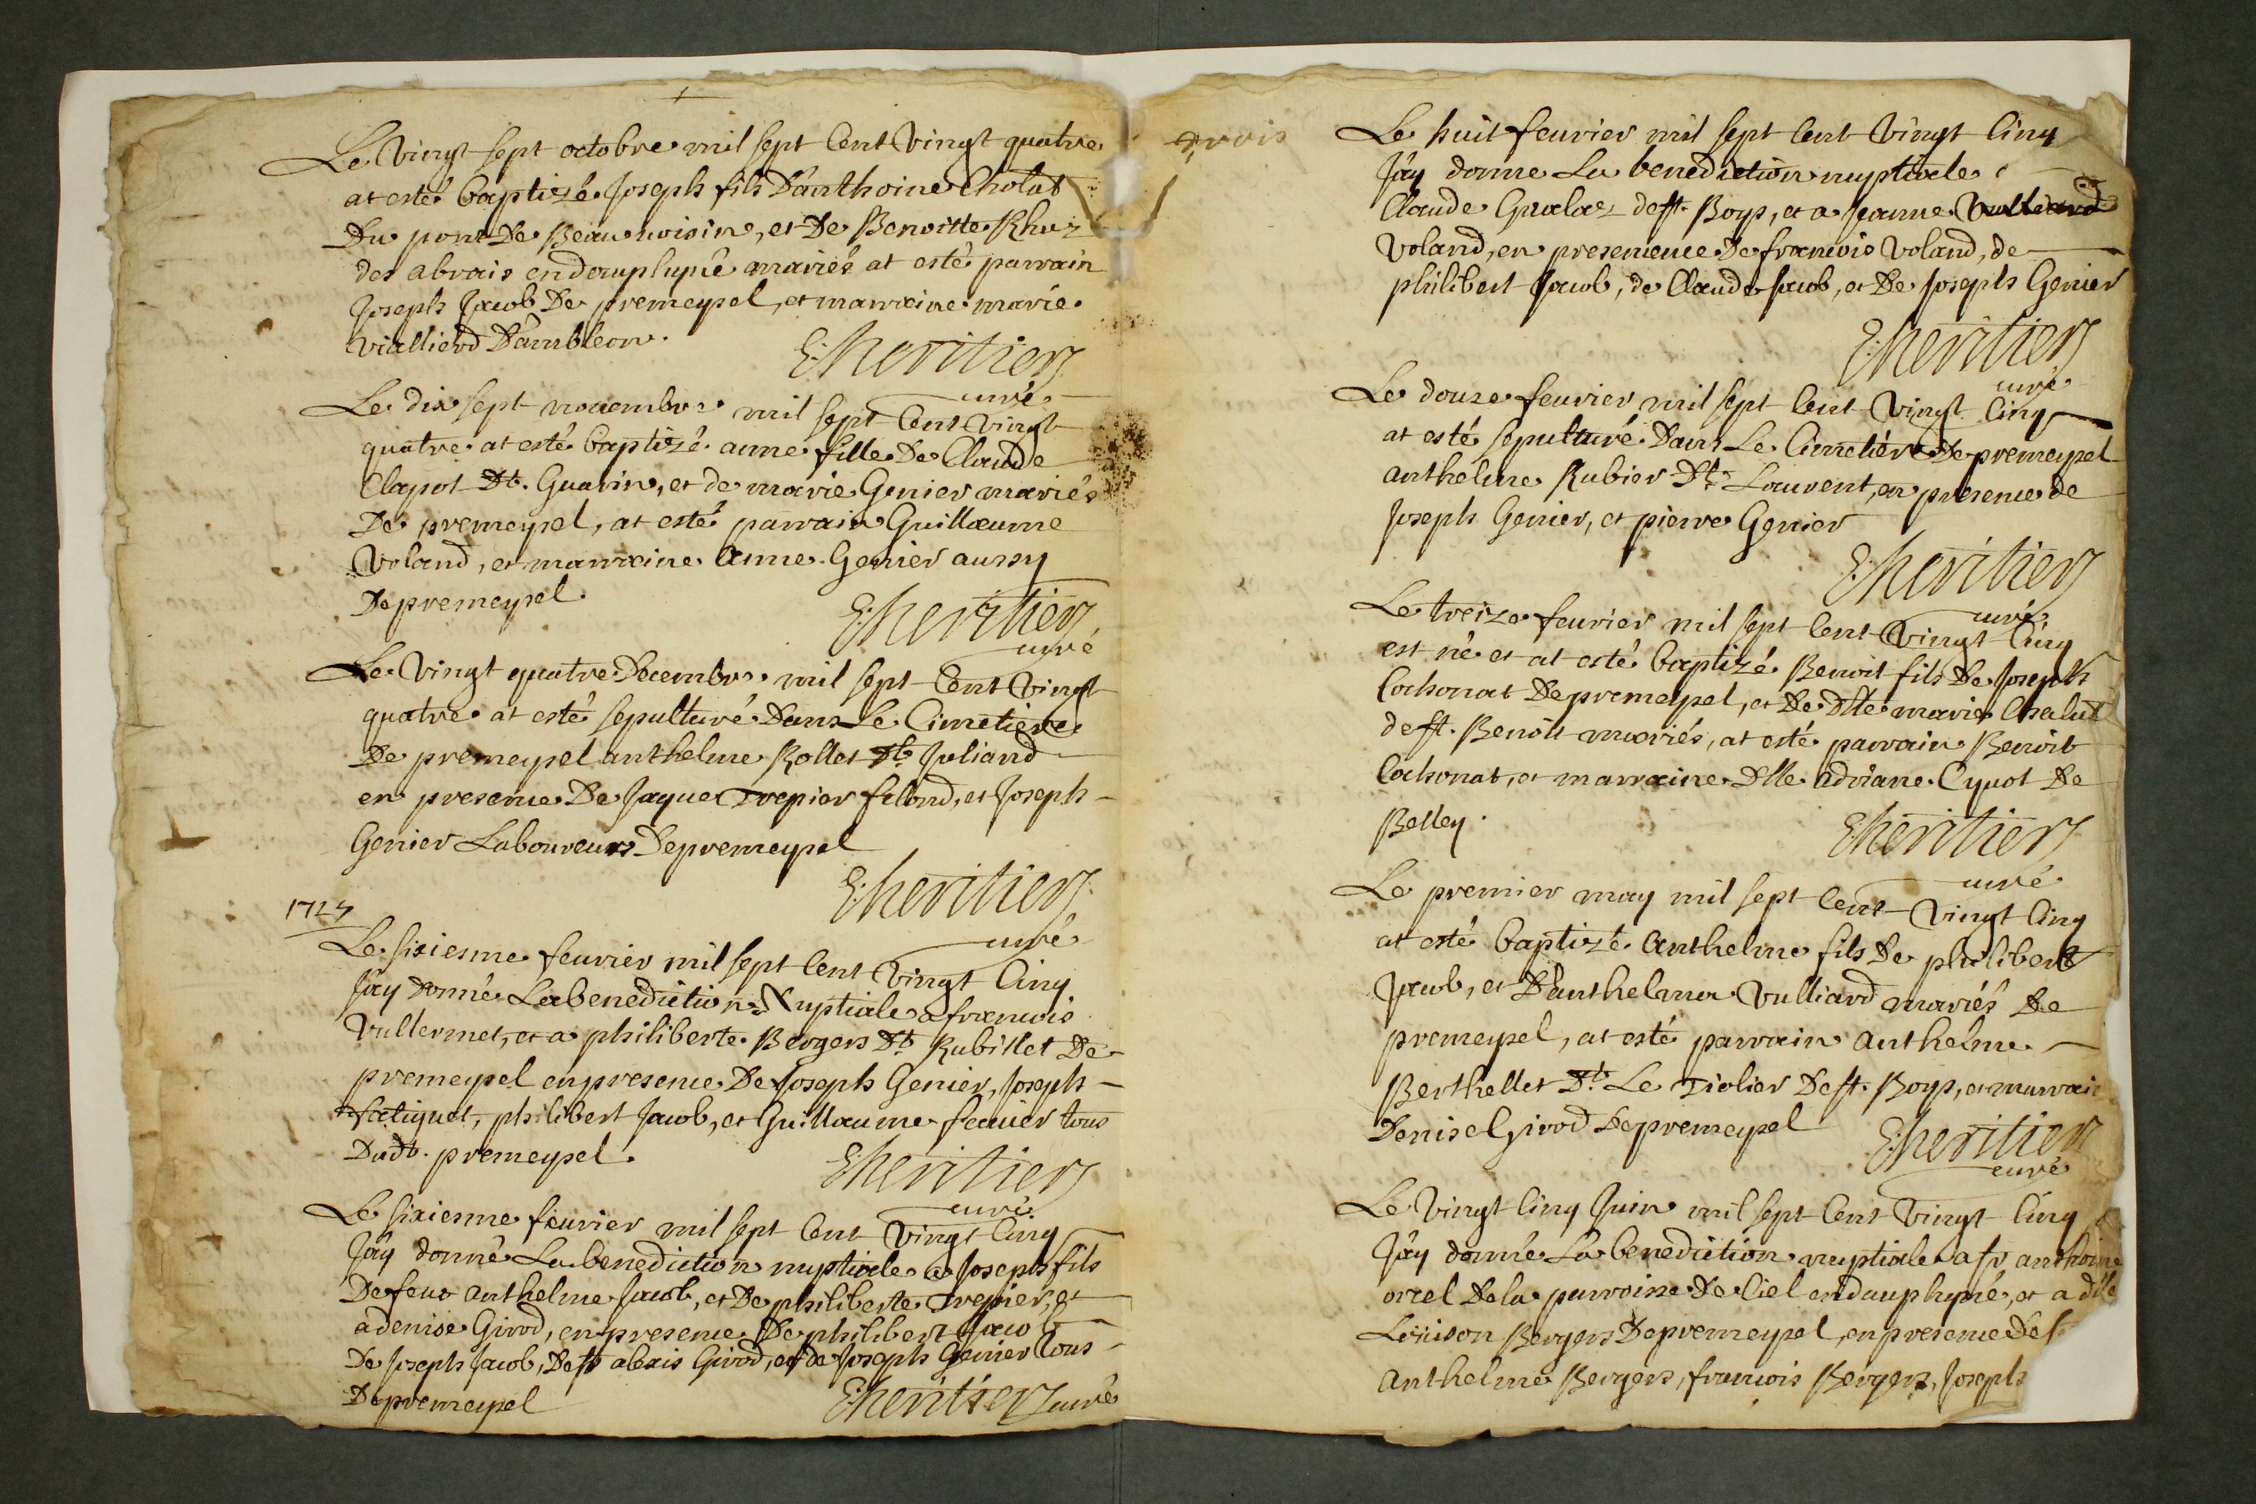 Le vingt sept octobre mil sept cent vingt quatre
at esté baptizé Joseph fils d'anthoine Cholat
du pont de Beauuoisin, et de Benoitte
des abrais en dauphyné mariés at esté parrain
Joseph Jacob de premeysel, et marraine marie
vialliend d'ambleon.
E: heritier
curé
Le dix sept nouembre mil sept cent vingt
quatre at esté baptizé anne fille de Claude
Clapot dt. Guarin, et de marie Genier mariés
de premeysel, at esté parrain Guillaume
Voland, et marraine anne Genier aussy
de premeysel.
E: heritier
curé
Le vingt quatre decembre mil sept cent vingt
quatre at esté sepulturé dans le cimetiere
de premeysel anthelme Rollet dt. Juliand
en presence de Jaque Trepier feland, et Joseph
Genier laboureurs de premeysel
E: heritier
curé
1725
Le sixiesme feurier mil sept cent vingt cinq
J'ay donné la benediction Nuptiale a francois
Vullermet, et a philiberte Bergers dt. Rubillet de
premeysel en presence de Joseph Genier, Joseph
fatiquet, philibert Jacob, et Guillaume feauier tous
dudt. premeysel.
E: heritier
curé
Le sixiesme feurier mil sept cent vingt cinq
J'ay donné la benediction nuptiale a Joseph fils
de feut anthelme Jacob, et de philiberte Trepier, et
a denise Girod, en presence de philibert Jacob
de Joseph Jacob, de sr alexis Girod, et de Joseph Genier tous
de premeysel
E: heritier curé
trois
Le huit feurier mil sept cent vingt cinq
J'ay donne la benediction nuptiale
Claude Gualaz de st. Boys, et a Jeanne
Voland, en presencence de francois Voland, de
philibert Jacob, de Claude Jacob, et de Joseph Genier
E: heritier
curé
Le douze feurier mil sept cent vingt cinq
at esté sepulturé dans le cimetiére de premeysel
anthelme Rubier dt. Laurent, en presence de
Joseph Genier, et pierre Genier
E: heritier
curé
Le treize feurier mil sept cent vingt cinq
est né et at esté baptizé Benoit fils de Joseph
Cochonat de premeysel, et de dlle marie Chalut
de st. Benoit mariés, at esté parrain Benoit
Cochonat, et marraine dlle adriane Cyuot de
Belley.
E: heritier
curé
Le premier may mil sept cent vingt cinq
at esté baptizé anthelme fils de philibert
Jacob, et d'anthelma Vulliard mariés de
premeysel, at esté parrain anthelme
Berthellet dt. Le Tiolier de st. Boys, et marrai
denise Girod de premeysel
E: heritier
curé
Le vingt cinq Juin mil sept cent vingt cinq
J'ay donné la benediction nuptiale a sr anthoine
orcel de la parroisse de Ciel en dauphyné, et a dlle
Loüison Bergers de premeysel, en presence de s
anthelme Bergers, francois Bergers, Joseph